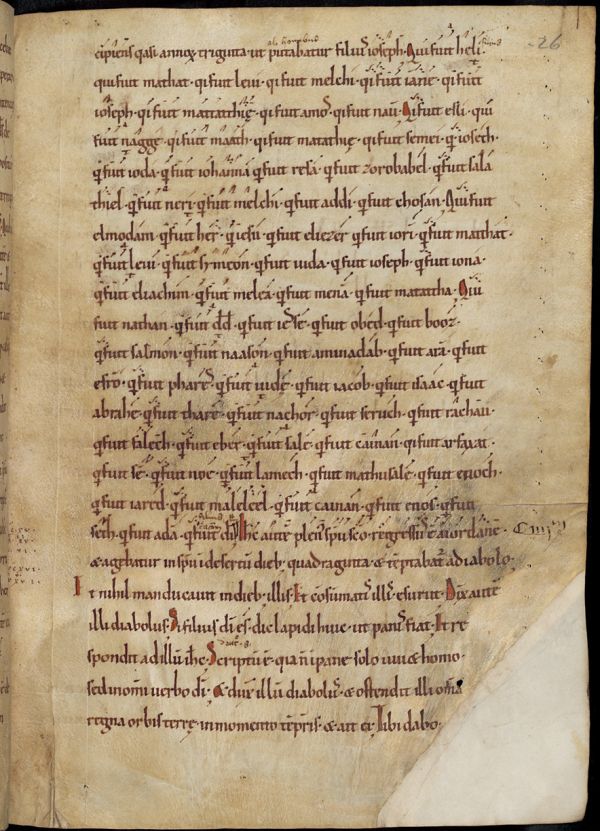 cipiens q̄si annoꝝ triginta · ut putabatur filiuſ ioſeph · Qui fuit heli ·
26
qui fuit mathat · qi fuit leui · qi fuit melchi · qi fuit ianne · qi fuit
ioſeph · qi fuit mattathię · qi fuit amoſ · qi fuit nau̅ · Qi fuit eſli · qui
fuit nagge · qi fuit maath · qi fuit matathię · qi fuit ſemei · q̄ ioſech ·
q̄ fuit ioda · q̄ fuit iohanna q̄ fuit reſa · q̄ fuit zorobabel · q̄ fuit ſala
thiel · q̄ fuit neri · q̄ fuit melchi · q̄ fuit addi · q̄ fuit choſan · Qui fuit
elmodam · q̄ fuit her · q̄ ieſu · q̄ fuit eliezer q̄ fuit iori · q̄ fuit matthat ·
q̄ fuit leui · q̄ fuit ſimeon · q̄ fuit iuda · q̄ fuit ioſeph · q̄ fuit iona ·
q̄ fuit eliachim · q̄ fuit melea · q̄ fuit mena · q̄ fuit matattha · Qui
fuit nathan · q̄ fuit dd̄ · q̄ fuit ieſſe · q̄ fuit obed · q̄ fuit booz ·
q̄ fuit ſalmon · q̄ fuit naaſon · q̄ fuit aminadab · q̄ fuit ara · q̄ fuit
eſro · q̄ fuit phareſ · q̄ fuit iudę · q̄ fuit iacob · q̄ fuit iſaac · q̄ fuit
abrahę · q̄ fuit thare · q̄ fuit nachor · q̄ fuit ſeruch · q̄ fuit rachau ·
q̄ fuit falech · q̄ fuit eber · q̄ fuit ſale · q̄ fuit cainan · qi fuit arfaxat ·
q̄ fuit ſe̅ · q̄ fuit noe · q̄ fuit lamech · q̄ fuit mathuſale · q̄ fuit enoch ·
q̄ fuit iared · q̄ fuit malelehel · q̄ fuit cainan · q̄ fuit enos · q̄ fuit
ſeth · q̄ fuit ada̅ · q̄ fuit di̅ Ihc aute̅ plenuſ ſpu̅ ſc̅o regreſſuſ e̅ a iordane ·
& agebatur in ſpu̅ in deſertu̅ dieb; quadraginta & te̅ptabat̅ a diabolo ·
Et nihil manducauit in dieb; illis · Et co̅ſumatiſ illiſ eſuriit · Dix̅ aute̅
illi diabolus · Si filius di̅ es · dic lapidi huic · ut paniſ fiat · Et re
ſpondit ad illu̅ ih̅c · Scriptu̅ e̅ · quia n̅ in pane ſolo uiu& homo ·
ſed in omni uerbo di̅ · & dux̅ illu̅ diaboluſ · & oſtendit illi omia
regna orbis terrę · in momento te̅poris · & ait ei · Tibi dabo ·